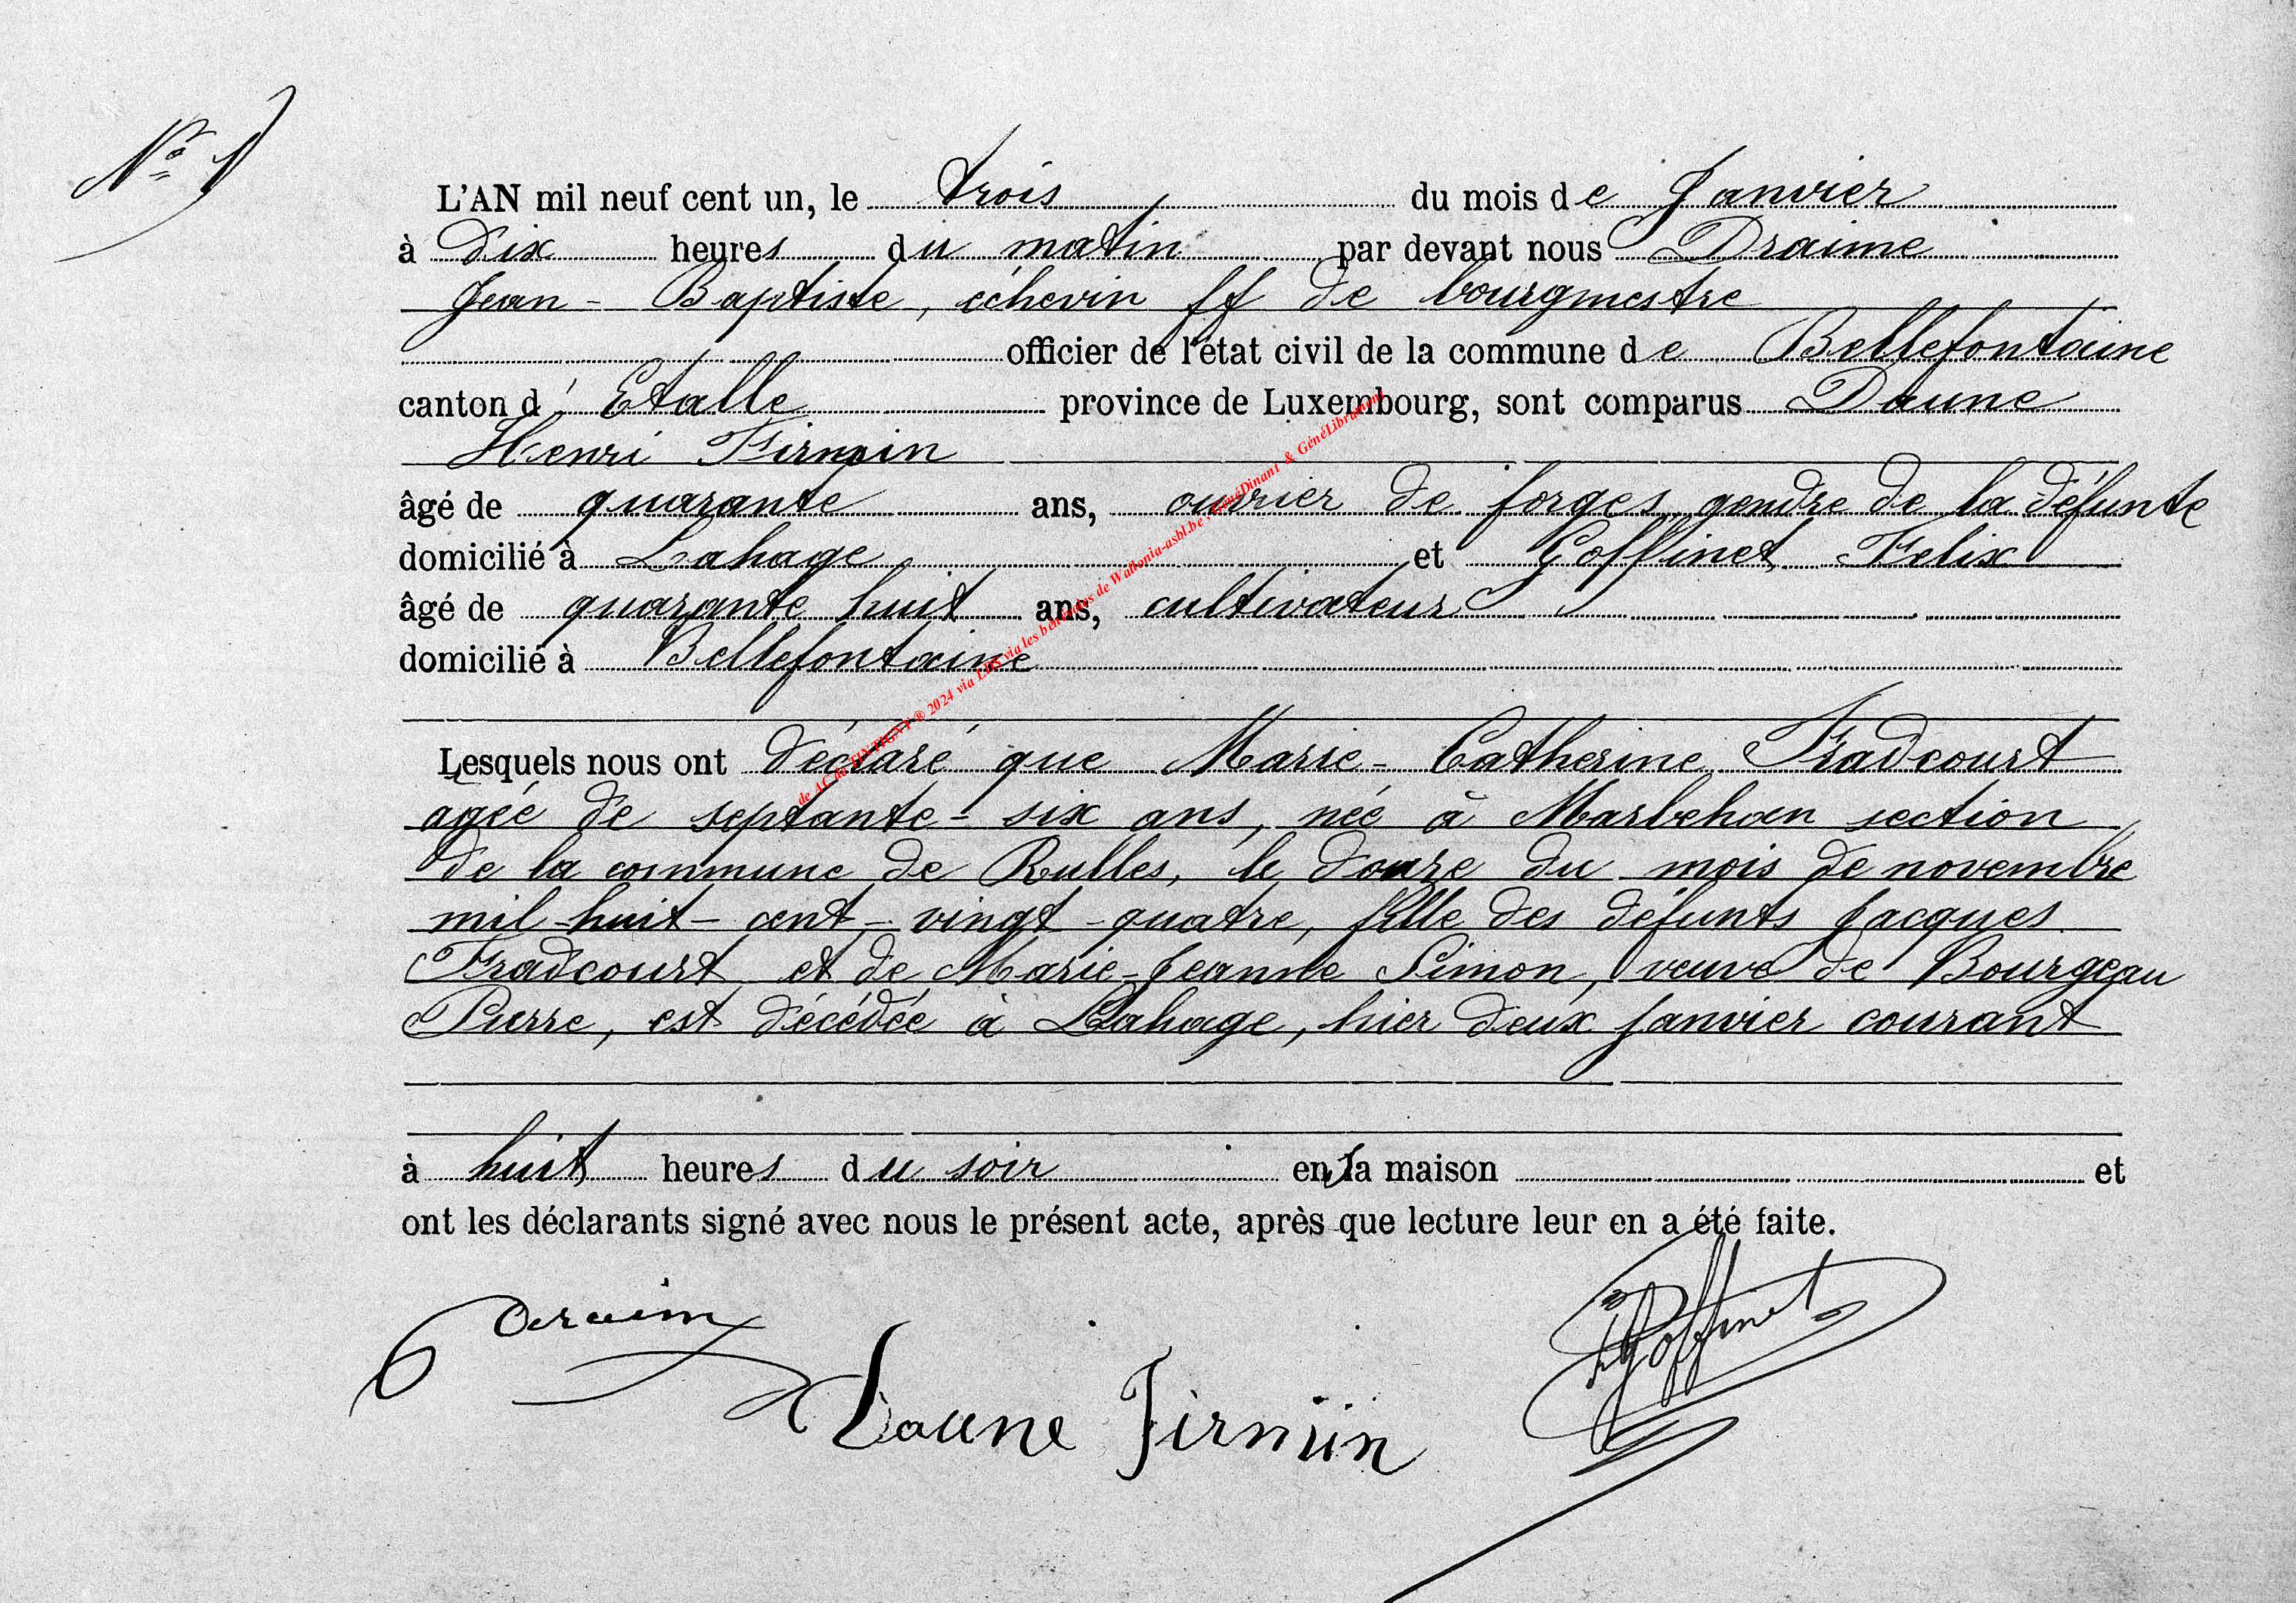 N° 1
L'AN mil neuf cent un, le trois du mois de Janvier
à dix heures du matin par devant nous Draime
Jean - Baptiste, échevin ff de bourgmestre
officier de l'état civil de la commune de Bellefontaine
canton d'Etalle province de Luxembourg, sont comparus Daune
Henri Firmin
âgé de quarante ans, ouvrier de forges, gendre de la défunte
domicilié à Lahage et Goffinet Felix
âgé de quarante huit ans, cultivateur
domicilié à Bellefontaine
Lesquels nous ont déclaré que Marie - Catherine Fradcourt
agée de septante - six ans, née à Marbehan section
de la commune de Rulles, le douze du mois de novembre
mil - huit - cent - vingt - quatre, fille des défunts Jacques
Fradcourt et de Marie - Jeanne Simon, veuve de Bourgeau
Pierre, est décédée à Lahage, hier deux janvier courant
à huit heures du soir en sa maison et
ont les déclarants signé avec nous le présent acte, après que lecture leur en a été faite.
Draim
Daune Firmin
Goffinet
de AC de TINTIGNY ® 2024 via LDS via les bénévoles de Wallonia-asbl.be , GénéDinant & GénéLibramont